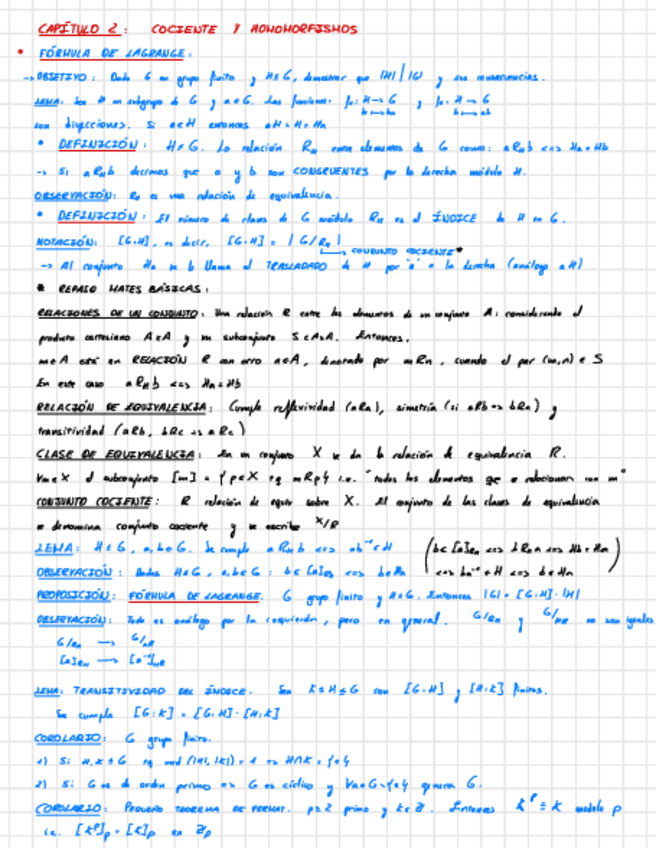 CAPÍTULO 2: COCIENTE Y HOMOMORFISMOS
• FÓRMULA DE LAGRANGE:
→ OBJETIVO: Dado G un grupo finito y H≤G, demostrar que |H| | |G| y sus consecuencias.
LEMA: Sea H un subgrupo de G y a∈G. Las funciones: H→G y H→G
h→ha h→ah
son biyecciones. Si a∈H entonces aH=H=Ha
• DEFINICIÓN: H≤G. La relación R_H entre elementos de G como: a R_H b <=> Ha=Hb
→ Si a R_H b decimos que a y b son CONGRUENTES por la derecha módulo H.
OBSERVACIÓN: R_H es una relación de equivalencia.
• DEFINICIÓN: El número de clases de G módulo R_H es el ÍNDICE de H en G.
NOTACIÓN: [G:H], es decir, [G:H] = | G/R_H |
CONJUNTO COCIENTE*
→ Al conjunto Ha se le llama el TRASLADADO de H por "a" a la derecha (análogo aH)
* REPASO MATES BÁSICAS:
RELACIONES DE UN CONJUNTO: Una relación R entre los elementos de un conjunto A: considerando el
producto cartesiano A×A y un subconjunto S⊂A×A. Entonces,
m∈A está en RELACIÓN R con otro n∈A, denotado por mRn, cuando el par (m,n) ∈ S
En este caso a R_H b <=> Ha=Hb
RELACIÓN DE EQUIVALENCIA: Cumple reflexividad (aRa), simetría (si aRb => bRa) y
transitividad (aRb, bRc => aRc)
CLASE DE EQUIVALENCIA: En un conjunto X se da la relación de equivalencia R.
∀m∈X el subconjunto [m] = {p∈X tq mRp} i.e. "todos los elementos que se relacionan con m"
CONJUNTO COCIENTE: R relación de equiv sobre X. El conjunto de las clases de equivalencia
se denomina conjunto cociente y se escribe X/R
LEMA: H≤G, a,b∈G. Se cumple a R_H b <=> ab⁻¹∈H (b∈[a]R_H <=> b R_H a <=> Hb=Ha)
OBSERVACIÓN: Dados H≤G, a,b∈G: b∈[a]R_H <=> b∈Ha (<=> ba⁻¹∈H <=> b∈Ha)
PROPOSICIÓN: FÓRMULA DE LAGRANGE. G grupo finito y H≤G. Entonces |G| = [G:H]·|H|
OBSERVACIÓN: Todo es análogo por la izquierda, pero en general G/R_H y G/_HR no son iguales
G/R_H → G/_HR
[a]R_H → [a⁻¹]_HR
LEMA: TRANSITIVIDAD DEL ÍNDICE. Sea K≤H≤G con [G:H] y [H:K] finitos.
Se cumple [G:K] = [G:H]·[H:K]
COROLARIO: G grupo finito.
1) Si H,K≤G tq mcd(|H|,|K|)=1 => H∩K={e}
2) Si G es de orden primo => G es cíclico y ∀a∈G-{e} genera G.
COROLARIO: PEQUEÑO TEOREMA DE FERMAT. p≥2 primo y k∈Z. Entonces k^p ≡ k modulo p
i.e. [k^p]_p = [k]_p en Z_p